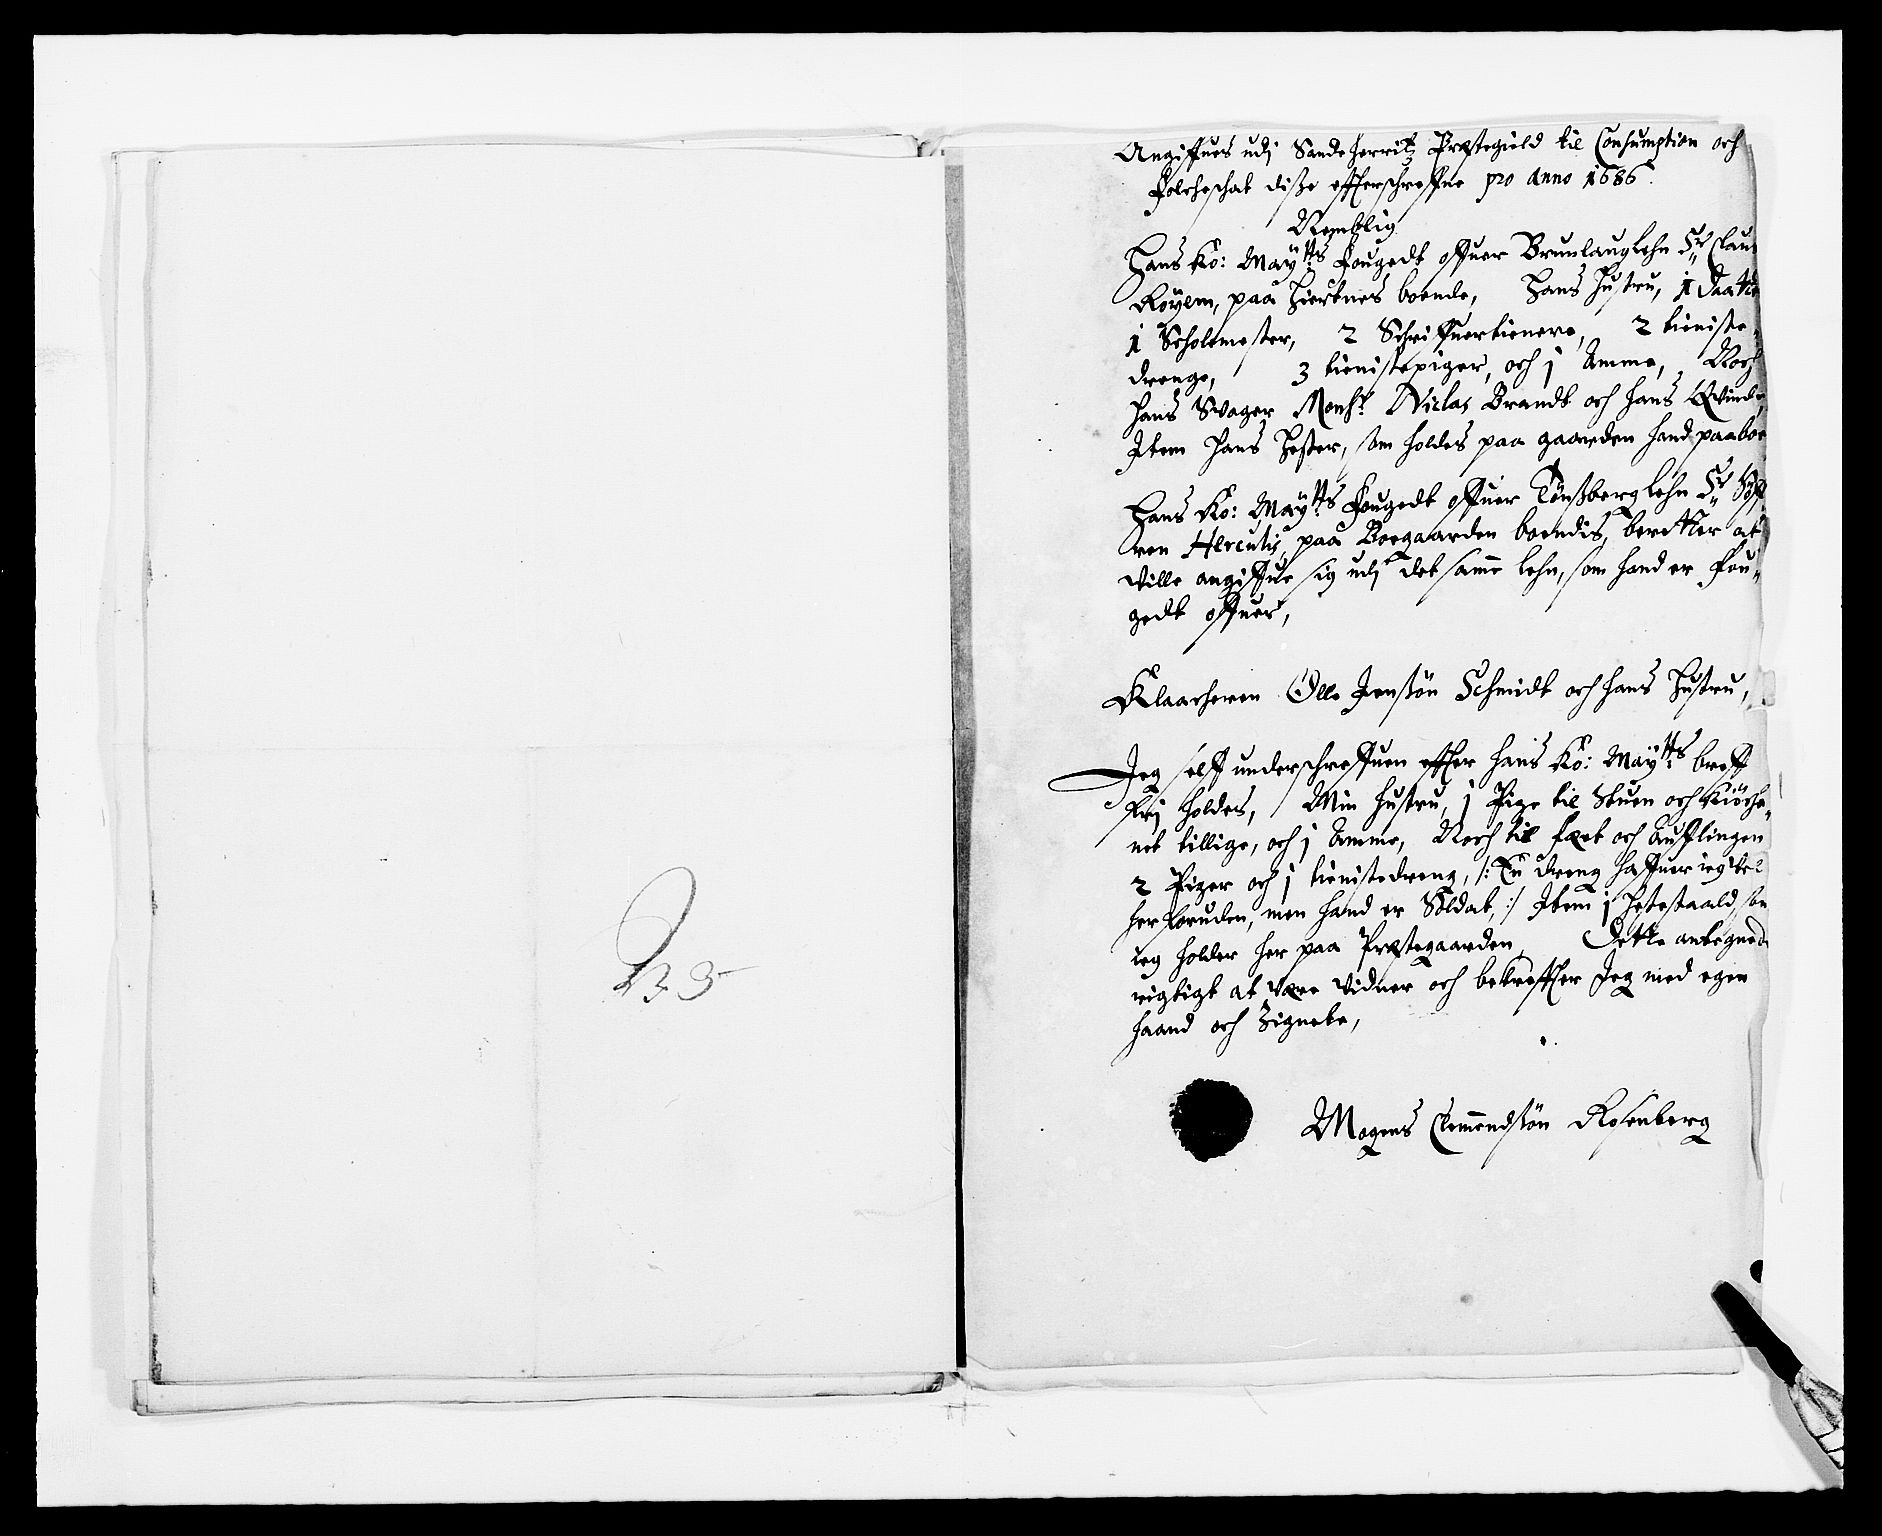 Angiffues udj Sandeherritz Præstegield til Consumption och
Folcheschat disse effterschreffne pro Anno 1686.
Nemblig
Hans Kó: Maÿtts Fougedt offuer Brunlauglehn Sr Claus
Röyem, paa Hiertnes boende, Hans Hustru, 1 Daatter
1 Scholemester, 2 Schriffuertienere, 2 tieniste-
drenge, 3 tienistepiger, och j Amme, Noch
hans Svager Monsr Niclas Brandt och hans Qvinde,
Item hans Hester, som holdes paa gaarden hand paaboer
Hans Kó: Maÿtts Fougedt offuer Tönsberg lehn Sr Söff
ren Herculis, paa Borgaarden boendis, beretter at
ville angiffue sig udj det samme lehn, som hand er Fou-
gedt offuer,
Klaacheren Olle Jenssön Schmidt och hans Hustru,
Jeg self underschreffuen effter hans Kó: Maÿtts breff
frj holdes, Min hustru, j Pige til Stuen och Kiöche-
net tillige, och j Amme, Noch til fæet och Aufflingen
2 Piger och j tienistedreng, /: En dreng haffuer ieg
her foruden, men hand er Soldat, :/ Item j hestestaald, som
ieg holder her paa Præstegaarden, Dette antegnede
rigtigt at være vidner och bekreffter Jeg med egen
haand och Zignete,
Mogens Clemendssön Rosenberg